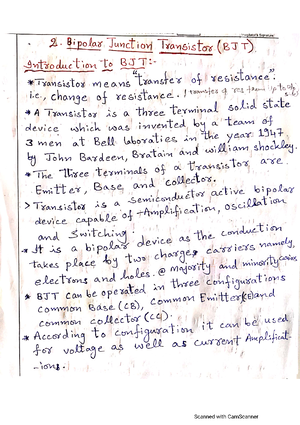 2. Bipolar Junction Transistor (BJT)
Introduction to BJT:-
* Transistor means "transfer of resistance".
i.e., change of resistance.
* A Transistor is a three terminal solid state
device which was invented by a team of
3 men at Bell laboraties in the year 1947
by John Bardeen, Bratain and william shockley.
* The three terminals of a transistor are
Emitter, Base and collector.
> Transistor is a semiconductor active bipolar
device capable of Amplification, oscillation
and Switching.
* It is a bipolar device as the conduction
takes place by two charge carriers namely,
electrons and holes. Majority and minority
* BJT can be operated in three configurations
common Base (CB), common Emitter and
common collector (CC).
* According to configuration it can be used
for voltage as well as current Amplificat-
-ions.
Scanned with CamScanner